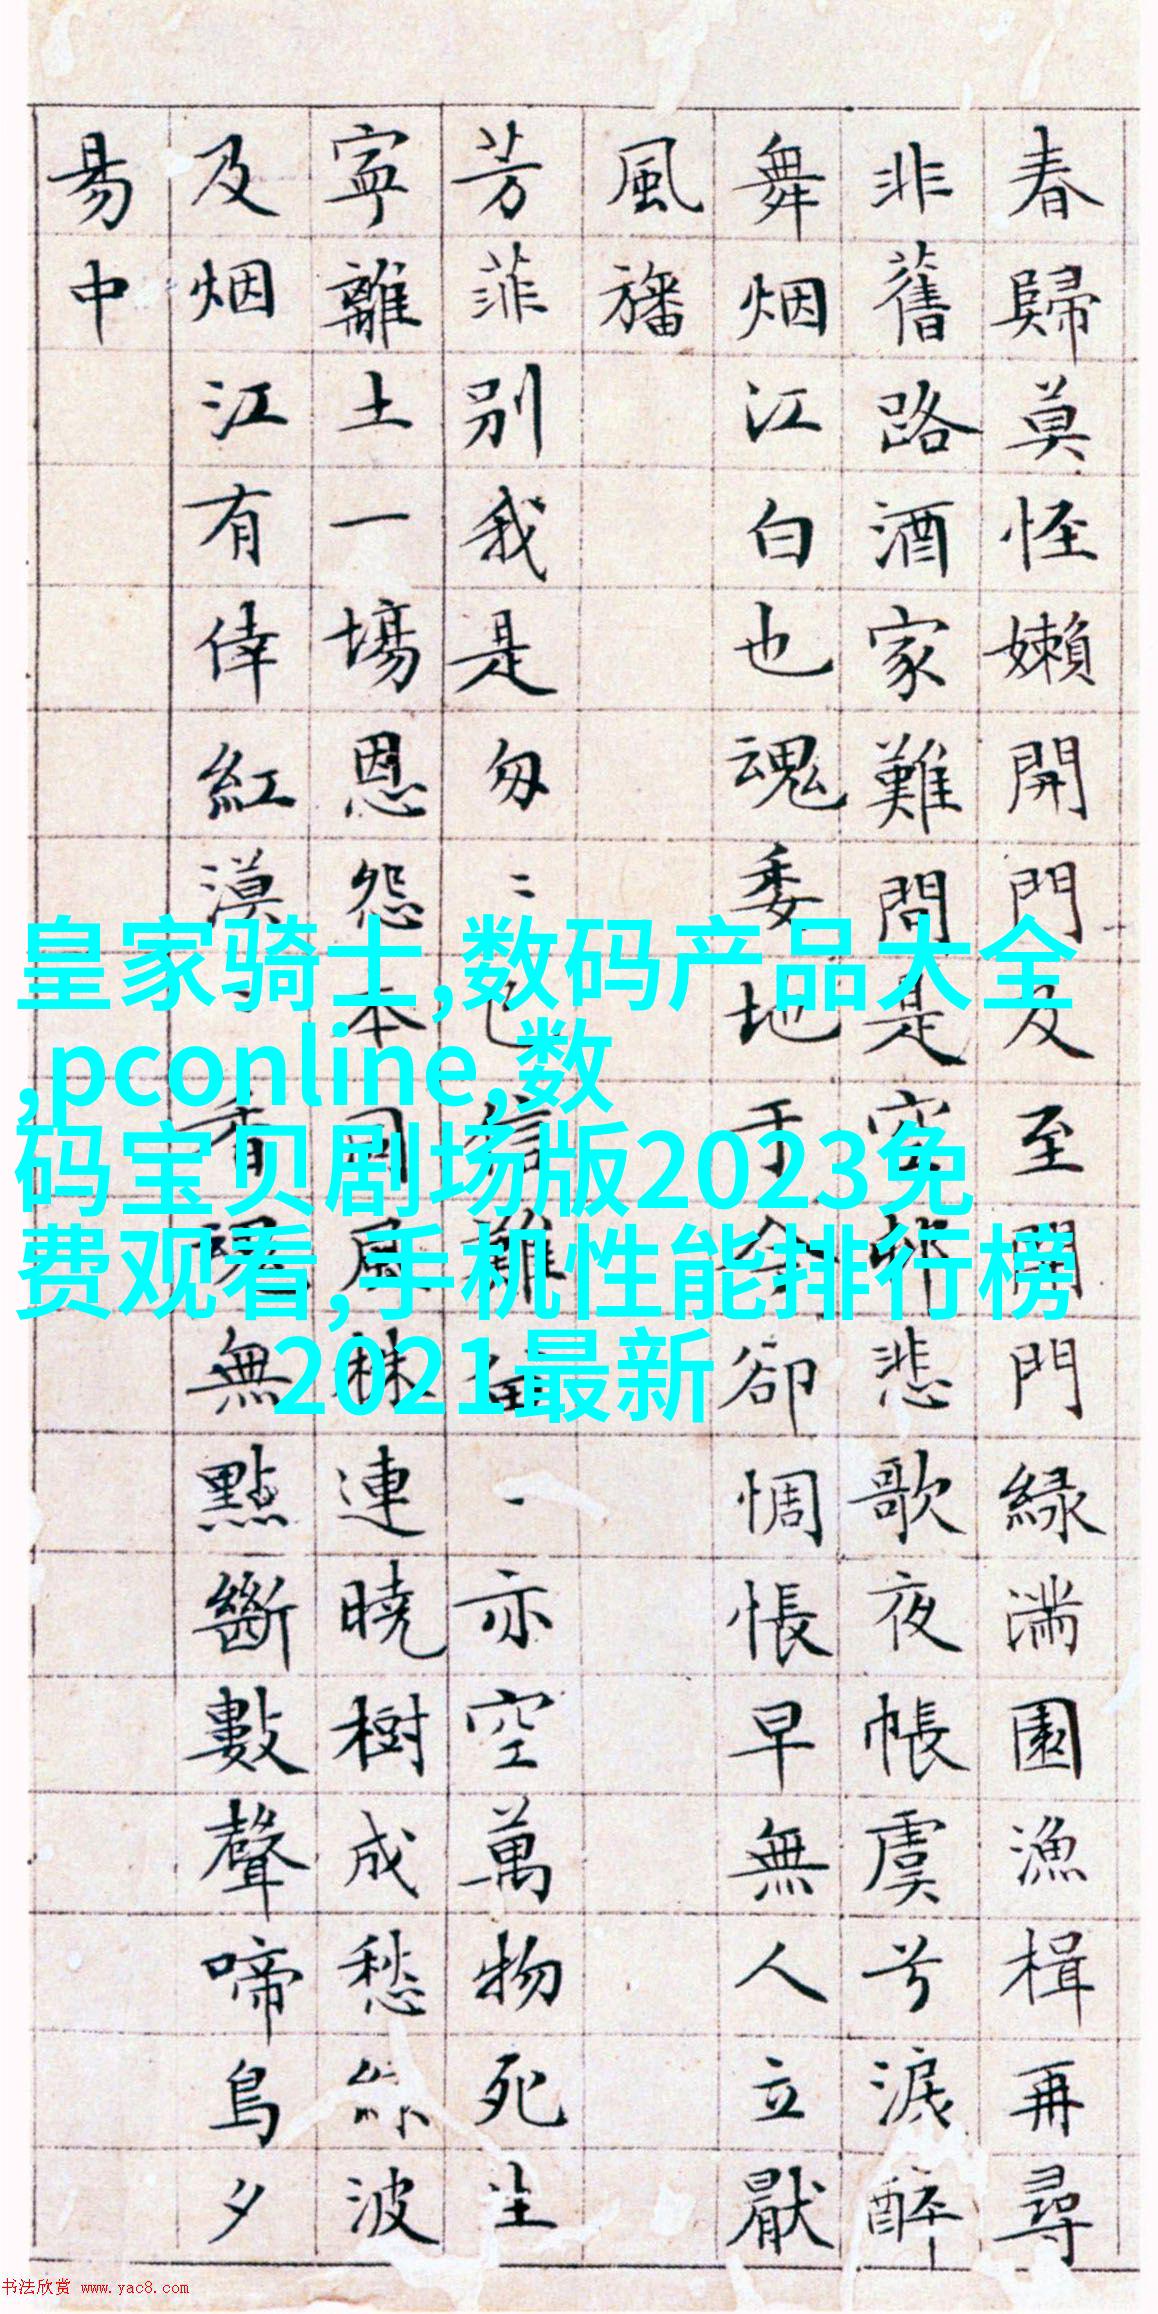 春歸莫怪嬾開門及至開門緑滿園漁楫再尋
非舊路酒家難問是空邨悲歌夜帳虞兮淚醉
舞烟江白也魂委地于今卻惆悵早無人立厭
風旛
芳菲別我是匆〻已信難留一亦空萬物死生
寧離土一場恩怨本同風株連曉樹成愁綠波
及烟江有倖紅漠〻香魂無點斷數聲啼鳥夕
易中
皇家骑士,数码产品大全
,pconline,数
码宝贝剧场版2023免
费观看,手机性能排行榜
2021最新
书法欣赏 www.yac8.com